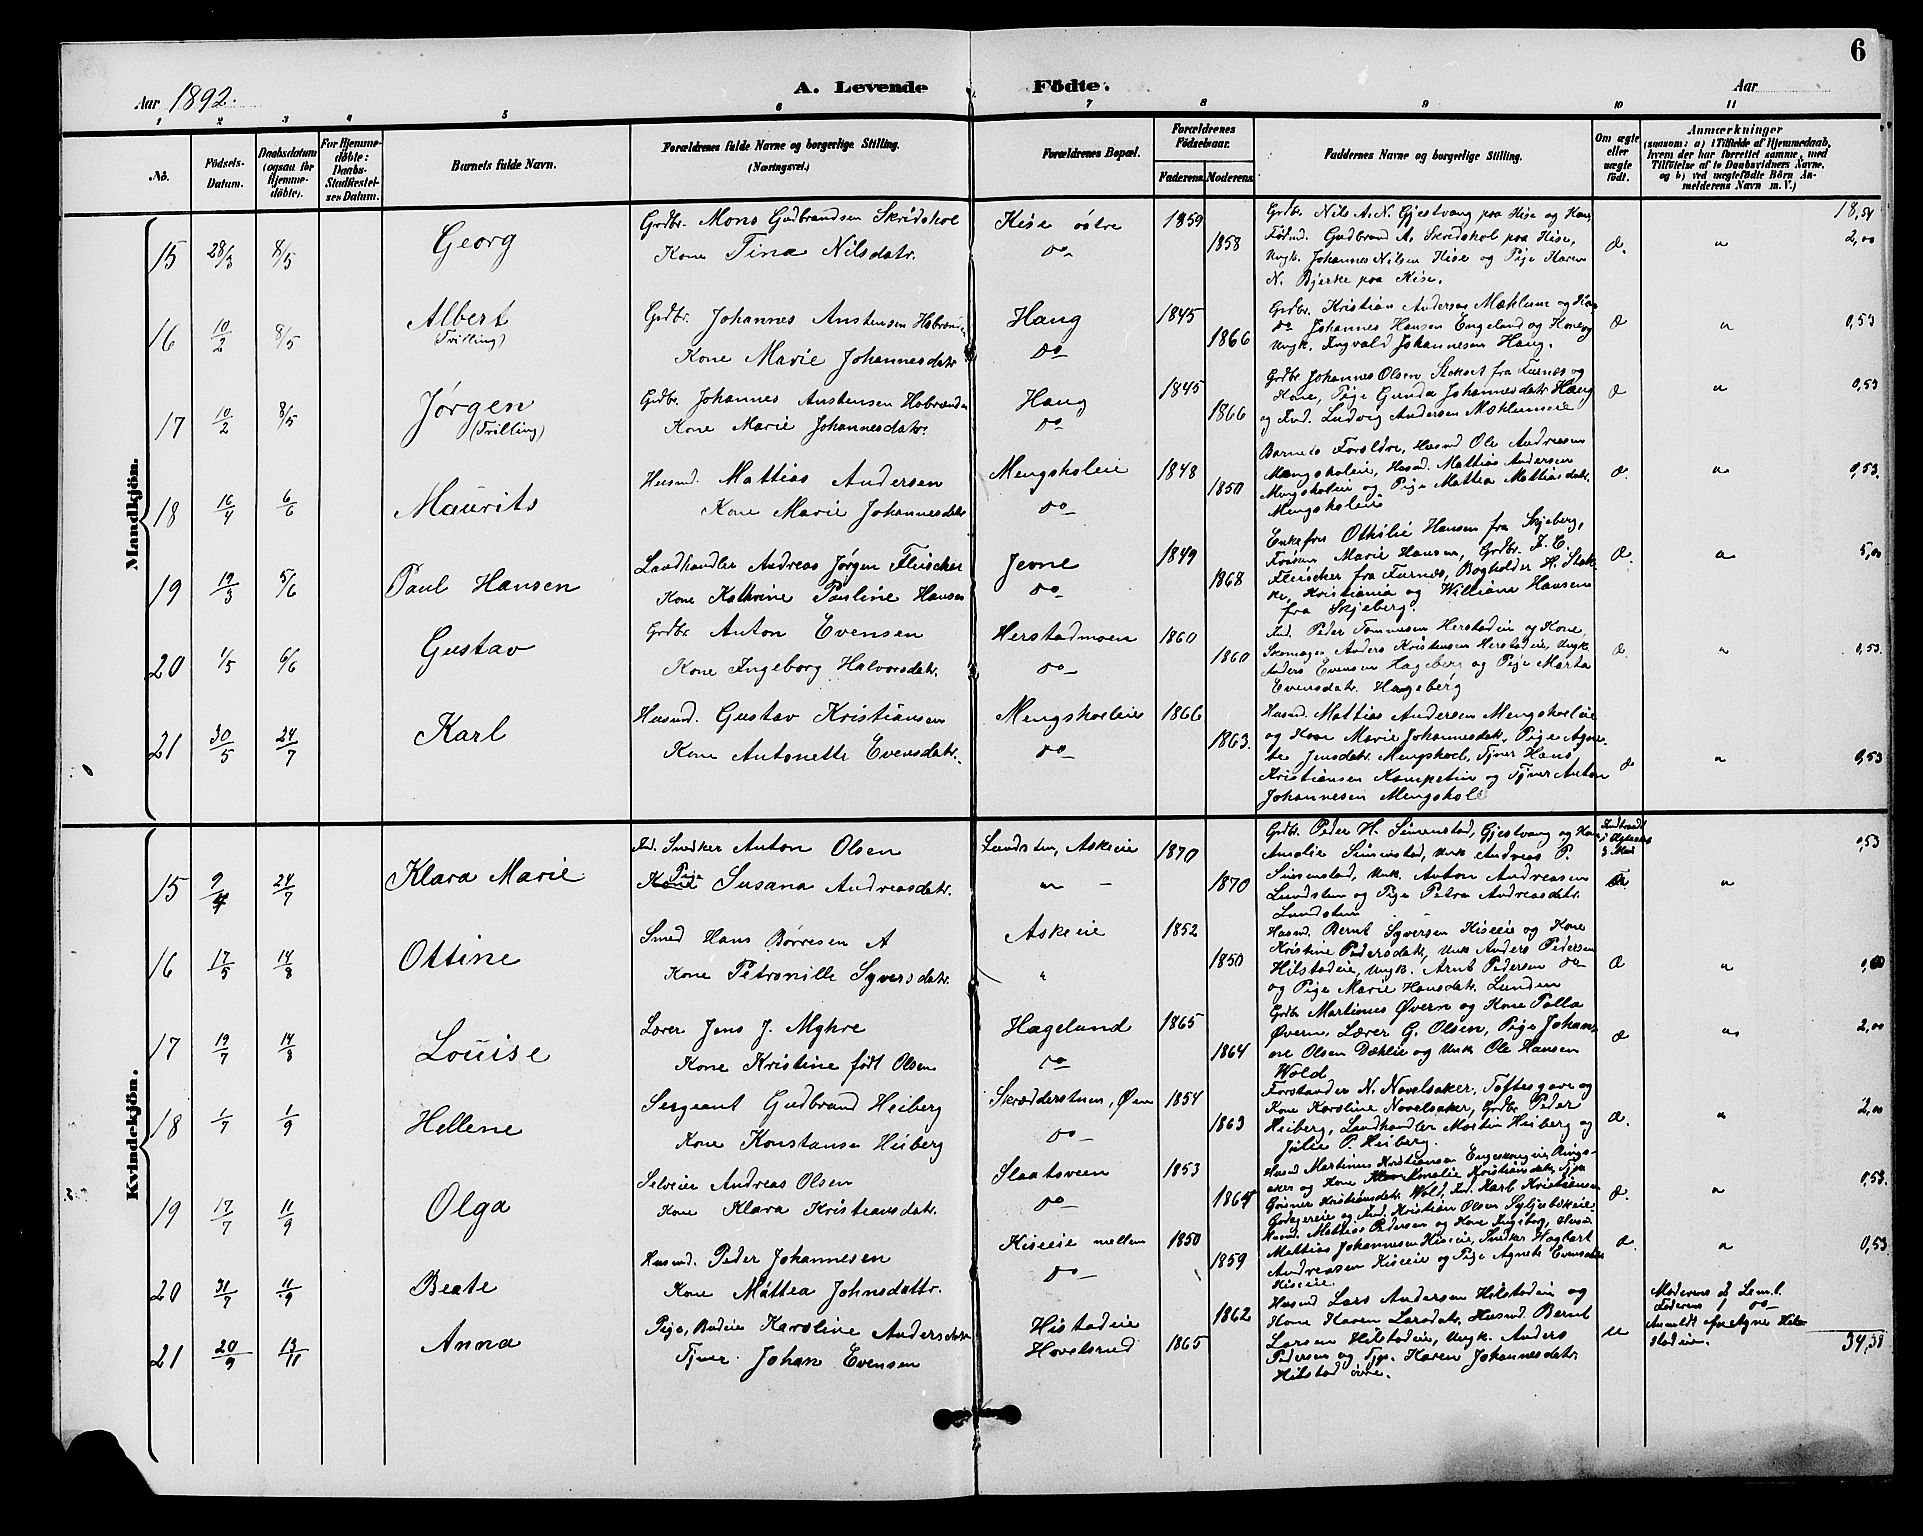 6
Aar 1892.
A. Levende Födte.
Aar
1 2 3 4 5 6 7 8 9 10 11
No.
Födsels-Datum.
Daabsdatum (ogsaa for Hjemme-döbte).
For Hjemme-döbte: Daabs-Stadfæstel-ses Datum.
Barnets fulde Navn.
Forældrenes fulde Navne og borgerlige Stilling. (Næringsvei.)
Forældrenes Bopæl.
Forældrenes Födselsaar.
Faderens. Moderens.
Faddernes Navne og borgerlige Stilling.
Om ægte eller uægte födt.
Anmærkninger (saasom: a) i Tilfælde af Hjemmedaab, hvem der har forrettet samme, med Tilföielse af to Daabsvidners Navne, og b) ved uægtefödte Börn An-melderens Navn m. V.)
Mandkjön.
18,54
15 28/3 8/5 Georg
Grdbr. Mons Gudbrandsen Skridshol
Kone Tina Nilsdatr.
Kise östre
do
1859 1858
Grdbr. Nils A. N. Gjestvang paa Kise og Kone,
Föd. Gudbrand A. Skridshol paa Kise,
Ungk. Johannes Nilsen Kise og Pige Karen
N. Bjerke paa Kise.
æ. " 2,00
16 10/2 8/5 Albert
(Tvilling)
Grdbr. Johannes Anstensen
Kone Marie Johannesdatr
Haug
do
1845 1866
Grdbr. Kristian Andersen Mæhlum og Kone
do Johannes Hansen Engelund og Kone og
Ungk. Ingvald Johannesen Haug.
æ " 0,53
17 10/2 8/5 Jørgen
(Tvilling)
Grdbr. Johannes Anstensen
Kone Marie Johannesdatr.
Haug
do
1845 1866
Grdbr Johannes Olsen Stokset fra Furnæs og
Kone, Pige Gunda Johannesdatr Haug
og Ind. Ludvig Andersen
æ " 0,53
18 16/4 6/6 Maurits
Husmd. Mattias Andersen
Kone Marie Johannesdatr
Mengsholeie
do
1848 1850
Barnets Foreldre, Husmd Ole Andreasen
Mengsholeie, Husmd. Mattias Andersen
Mengsholeie og Pige Mattea Mattiasdatr.
Mengsholeie
æ. " 0,53.
19 19/3 5/6 Paul Hansen
Landhandler Andreas Jørgen Fleischer
Kone Kathrine Pauline Hansen
Jevne
do
1849 1868
Enkefru Othilie Hansen fra Skjeberg,
Frøken Marie Hansen, Grdbr. F. C.
Fleischer fra Furnæs, Bogholder H. Stok-
ke, Kristiania og William Hansen
fra Skjeberg.
æ. " 5,00
20 1/5 6/6 Gustav
Grdbr Anton Evensen
Kone Ingeborg Halvorsdatr.
Herstadmoen
do
1860 1860
Ind. Peder Tommesen Herstadeie og Kone,
Skomager Anders Kristensen Herstadeie, Ungk.
Anders Evensen Hageberg og Pige Marta
Evensdatr. Hageberg
æ " 0,53.
21 30/5 24/7 Karl
Husmd. Gustav Kristiansen
Kone Antonette Evensdatr.
Mengsholeie
do
1866 1863.
Husmd. Mattias Andersen Mengsholeie
og Kone Marie Johannesdatr, Pige Agne-
te Jensdatr. Mengshoel, Tjner Hans
Kristiansen og Tjner Anton
Johannesen Mengshol
æ " 0,53
Kvindekjön.
15 9/4 24/7 Klara Marie
Ind. Snedker Anton Olsen
Kone Pige Susana Andreasdatr.
Lundsten, Askeie
" -
1870 1870
Grdbr. Peder H. Simenstad, Gjestvang og Kone
Amalie Simenstad, Unk Andreas P.
Simenstad, Unk. Anton Andreasen
Lundsten og Pige Petra Andreasdatr.
Lundsten
" 0,53
16 17/5 14/8 Ottine
Smed Hans Børresen A
Kone Petronille Syversdatr.
Askeie
"
1852 1850
Husmd. Bernt Syversen Kiseeie og Kone
Kristine Pedersdatr, Unk Anders Pedersen
Hilstadeie, Ungk. Arnt Pedersen do
og Pige Marie Hansdatr. Lunden
æ "
17 19/7 14/8 Louise
Lærer Jens J. Myhre
Kone Kristine født Olsen
Hagelund
do
1865 1864
Grdbr Martinus Øveren og Kone Palla
Øveren, Lærer G. Olsen, Pige Johan-
ne Olsen Dæhlie og Unk Ole Hansen
Wold
æ " 2,00
18 1/7 1/9 Hellene
Sergeant Gudbrand Heiberg
Kone Konstanse Heiberg
Skrædderstuen, Øvn
do
1854 1863
Forstander N. Novelsaker, Toftesgave og
Kone Karoline Novelsaker, Grdbr. Peder
Heiberg, Landhandler Martin Heiberg og
Julie P. Heiberg.
æ. " 2,00
19 17/7 11/9 Olga
Selveier Andreas Olsen
Kone Klara Kristiansdatr.
Slaatsveen
do
1853 1864
Husmd Martinus Kristiansen Rings-
aker og Kone Amalie Kristiansdatr, Pige
Kristiansdatr Wold, Ind. Karl Kristiansen
og Ind. Kristian Olsen
æ. " 0,53.
20 31/7 11/9 Beate
Husmd. Peder Johannesen
Kone Mattea Johnsdattr.
Kiseeie mellem
do
1850 1859
Husmd. Mattias Pedersen og Kone Ingeborg, Husmd
Mattias Johannesen Kiseeie, Snedker Hagbart
Andreasen Kiseeie og Pige Agnete Evensdatr
Kiseeie
æ. " 0,53
21 20/9 13/11 Anna
Pige, Budeie Karoline Andersdatr
Tjner Johan Evensen
Histadeie
Hovelsrud
1862 1865
Husmd Lars Andersen Hilstadeie og
Kone Karen Larsdatr, Husmd Bernt
Larsen Hilstadeie, Ungk. Anders
Pedersen og Pige. Karen Johannesdatr.
Hilstad øvre.
u
Moderens 2 Lem.
Faderens 1 do
Anmeldt af Agne Hil-
stadeie.
34,38